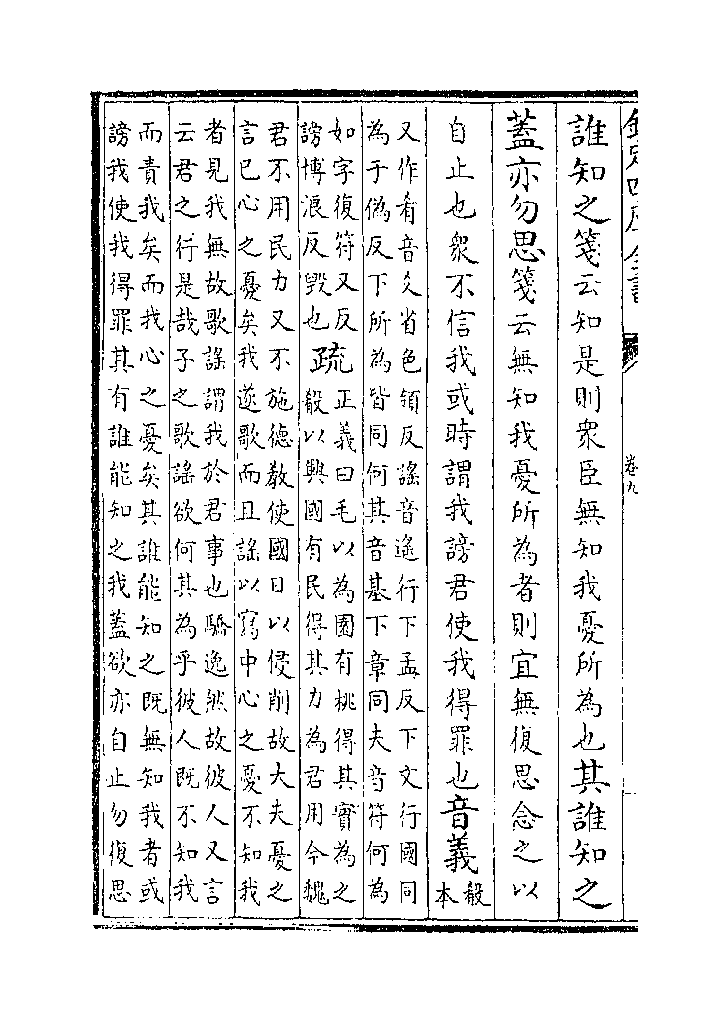 欽定四庫全書 卷九
誰知之箋云知是則衆臣無知我憂所為也其誰知之
蓋亦勿思箋云無知我憂所為者則宜無復思念之以
自止也衆不信我或時謂我謗君使我得罪也音義殽本
又作肴音爻省色領反謠音遙行下孟反下文行國同
為于偽反下所為皆同何其音基下章同夫音符何為
如字復符又反
謗博浪反毀也
疏
正義曰毛以為園有桃得其實為之
殽以興國有民得其力為君用今魏
君不用民力又不施德教使國日以侵削故大夫憂之
言已心之憂矣我遂歌而且謠以寫中心之憂不知我
者見我無故歌謠謂我於君事也驕逸然故彼人又言
云君之行是哉子之歌謠欲何其為乎彼人既不知我
而責我矣而我心之憂矣其誰能知之既無知我者或
謗我使我得罪其有誰能知之我蓋欲亦自止勿復思